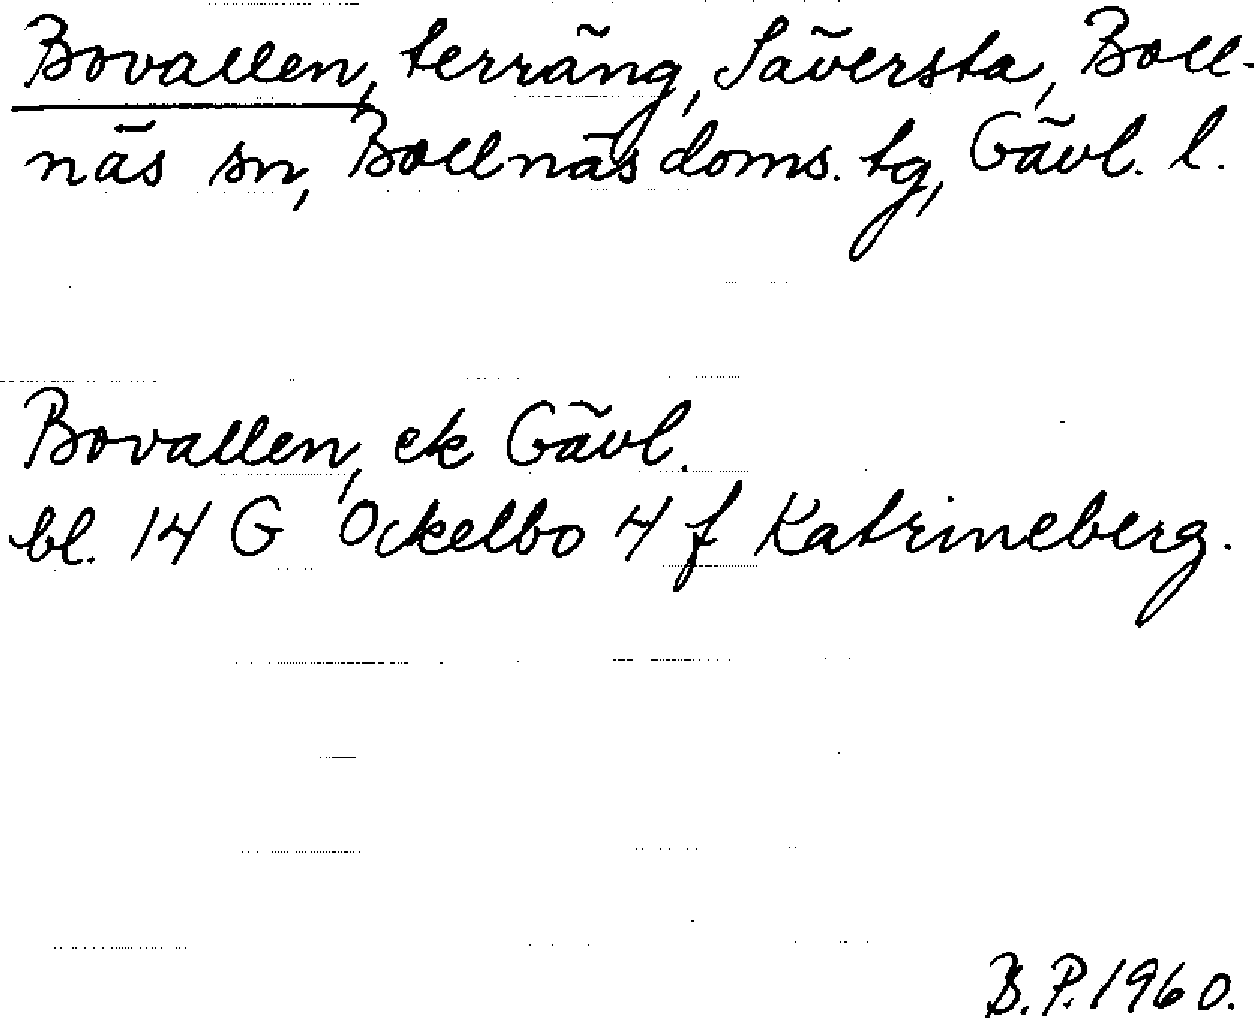 Bovallen, terräng, Säversta, Boll-
näs sn, Bollnäs doms. tg, Gävl. l.
Bovallen, ek Gävl.
bl. 14 G Ockelbo 4 f Katrineberg.
B.P. 1960.